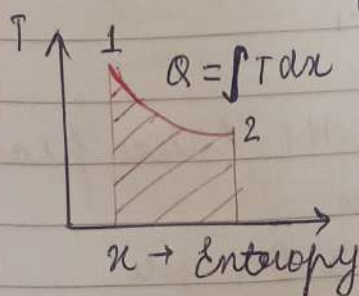 T
1
Q = ∫T dx
2
x → Entropy